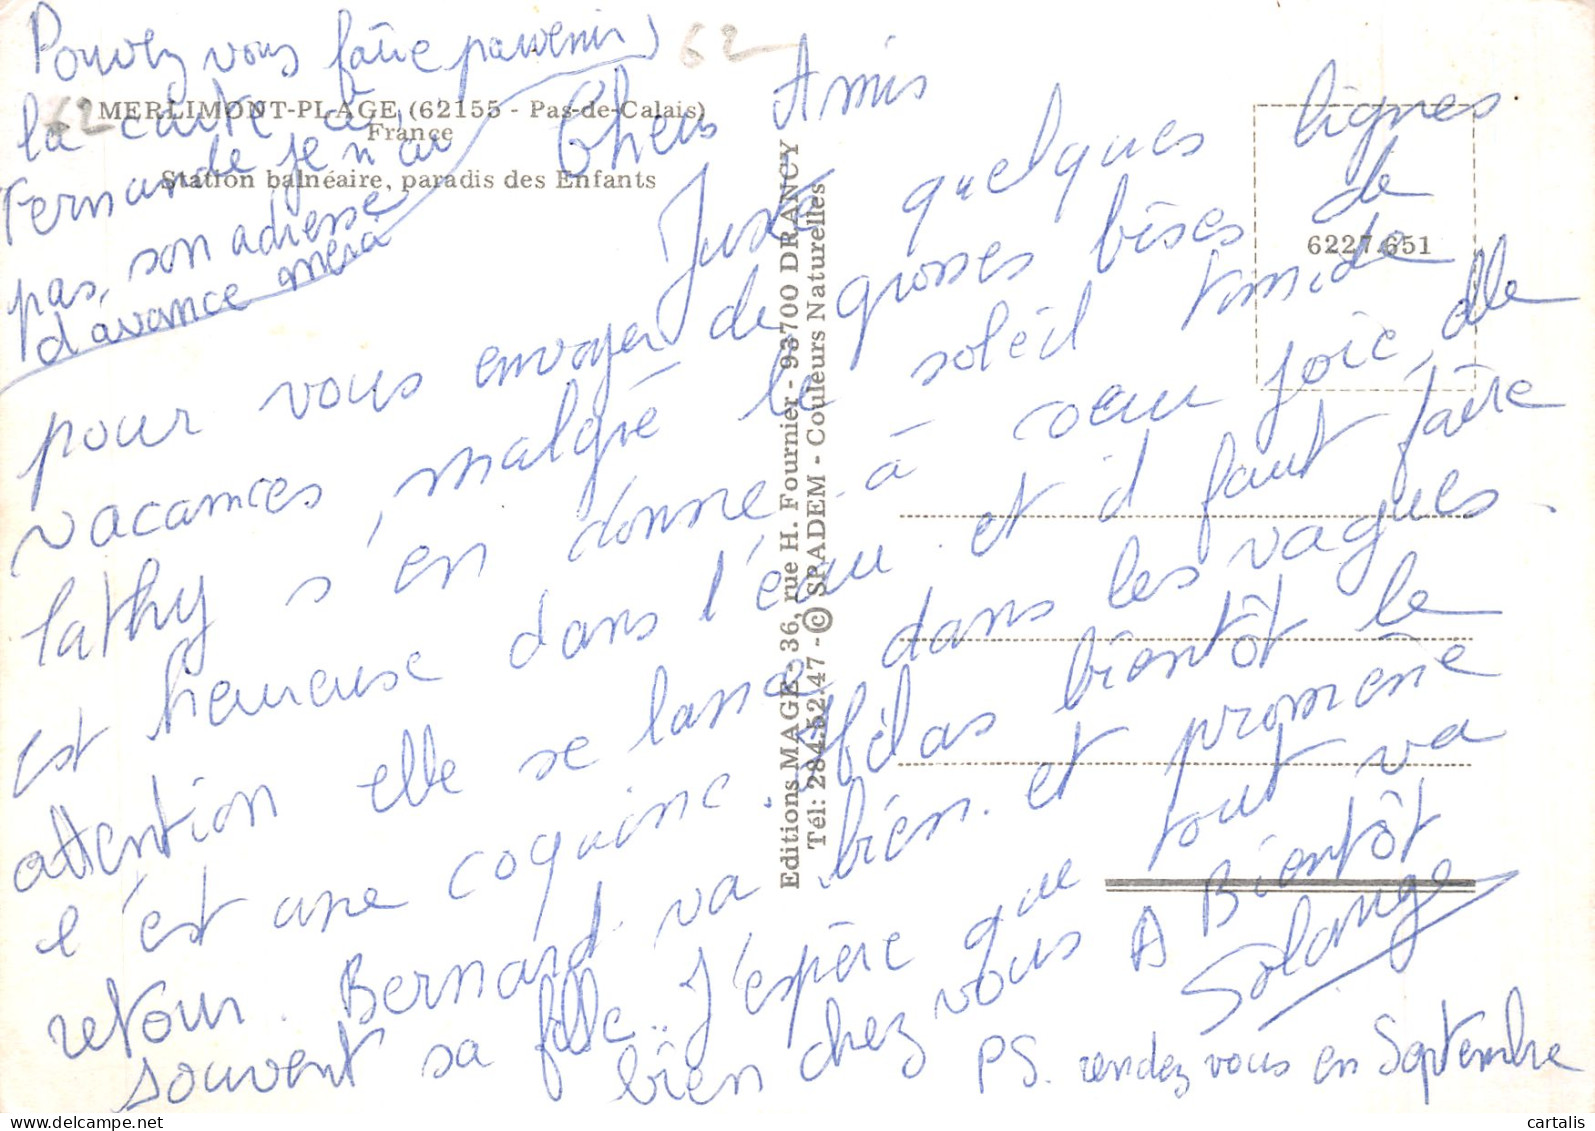 Pouvez vous faire parvenir
la carte à
Fernande je n'ai
pas, son adresse
d'avance merci
62
62
MERLIMONT-PLAGE (62155 - Pas-de-Calais)
France
Station balnéaire, paradis des Enfants
Chers Amis
Juste quelques lignes
pour vous envoyer de grosses bises de
vacances, malgré le soleil timide
Cathy s'en donne à coeur joie, elle
est heureuse dans l'eau. et il faut faire
attention elle se lance dans les vagues.
c'est une coquine. Hélas bientôt le
retour. Bernard va bien. et promène
souvent sa fille. J'espère que tout va
bien chez vous A Bientôt
Solange
PS. rendez vous en Septembre
Editions MAGE - 36, rue H. Fournier - 93700 DRANCY
Tél: 284.52.47 - © SPADEM - Couleurs Naturelles
6227.651
delcampe.net
cartalis